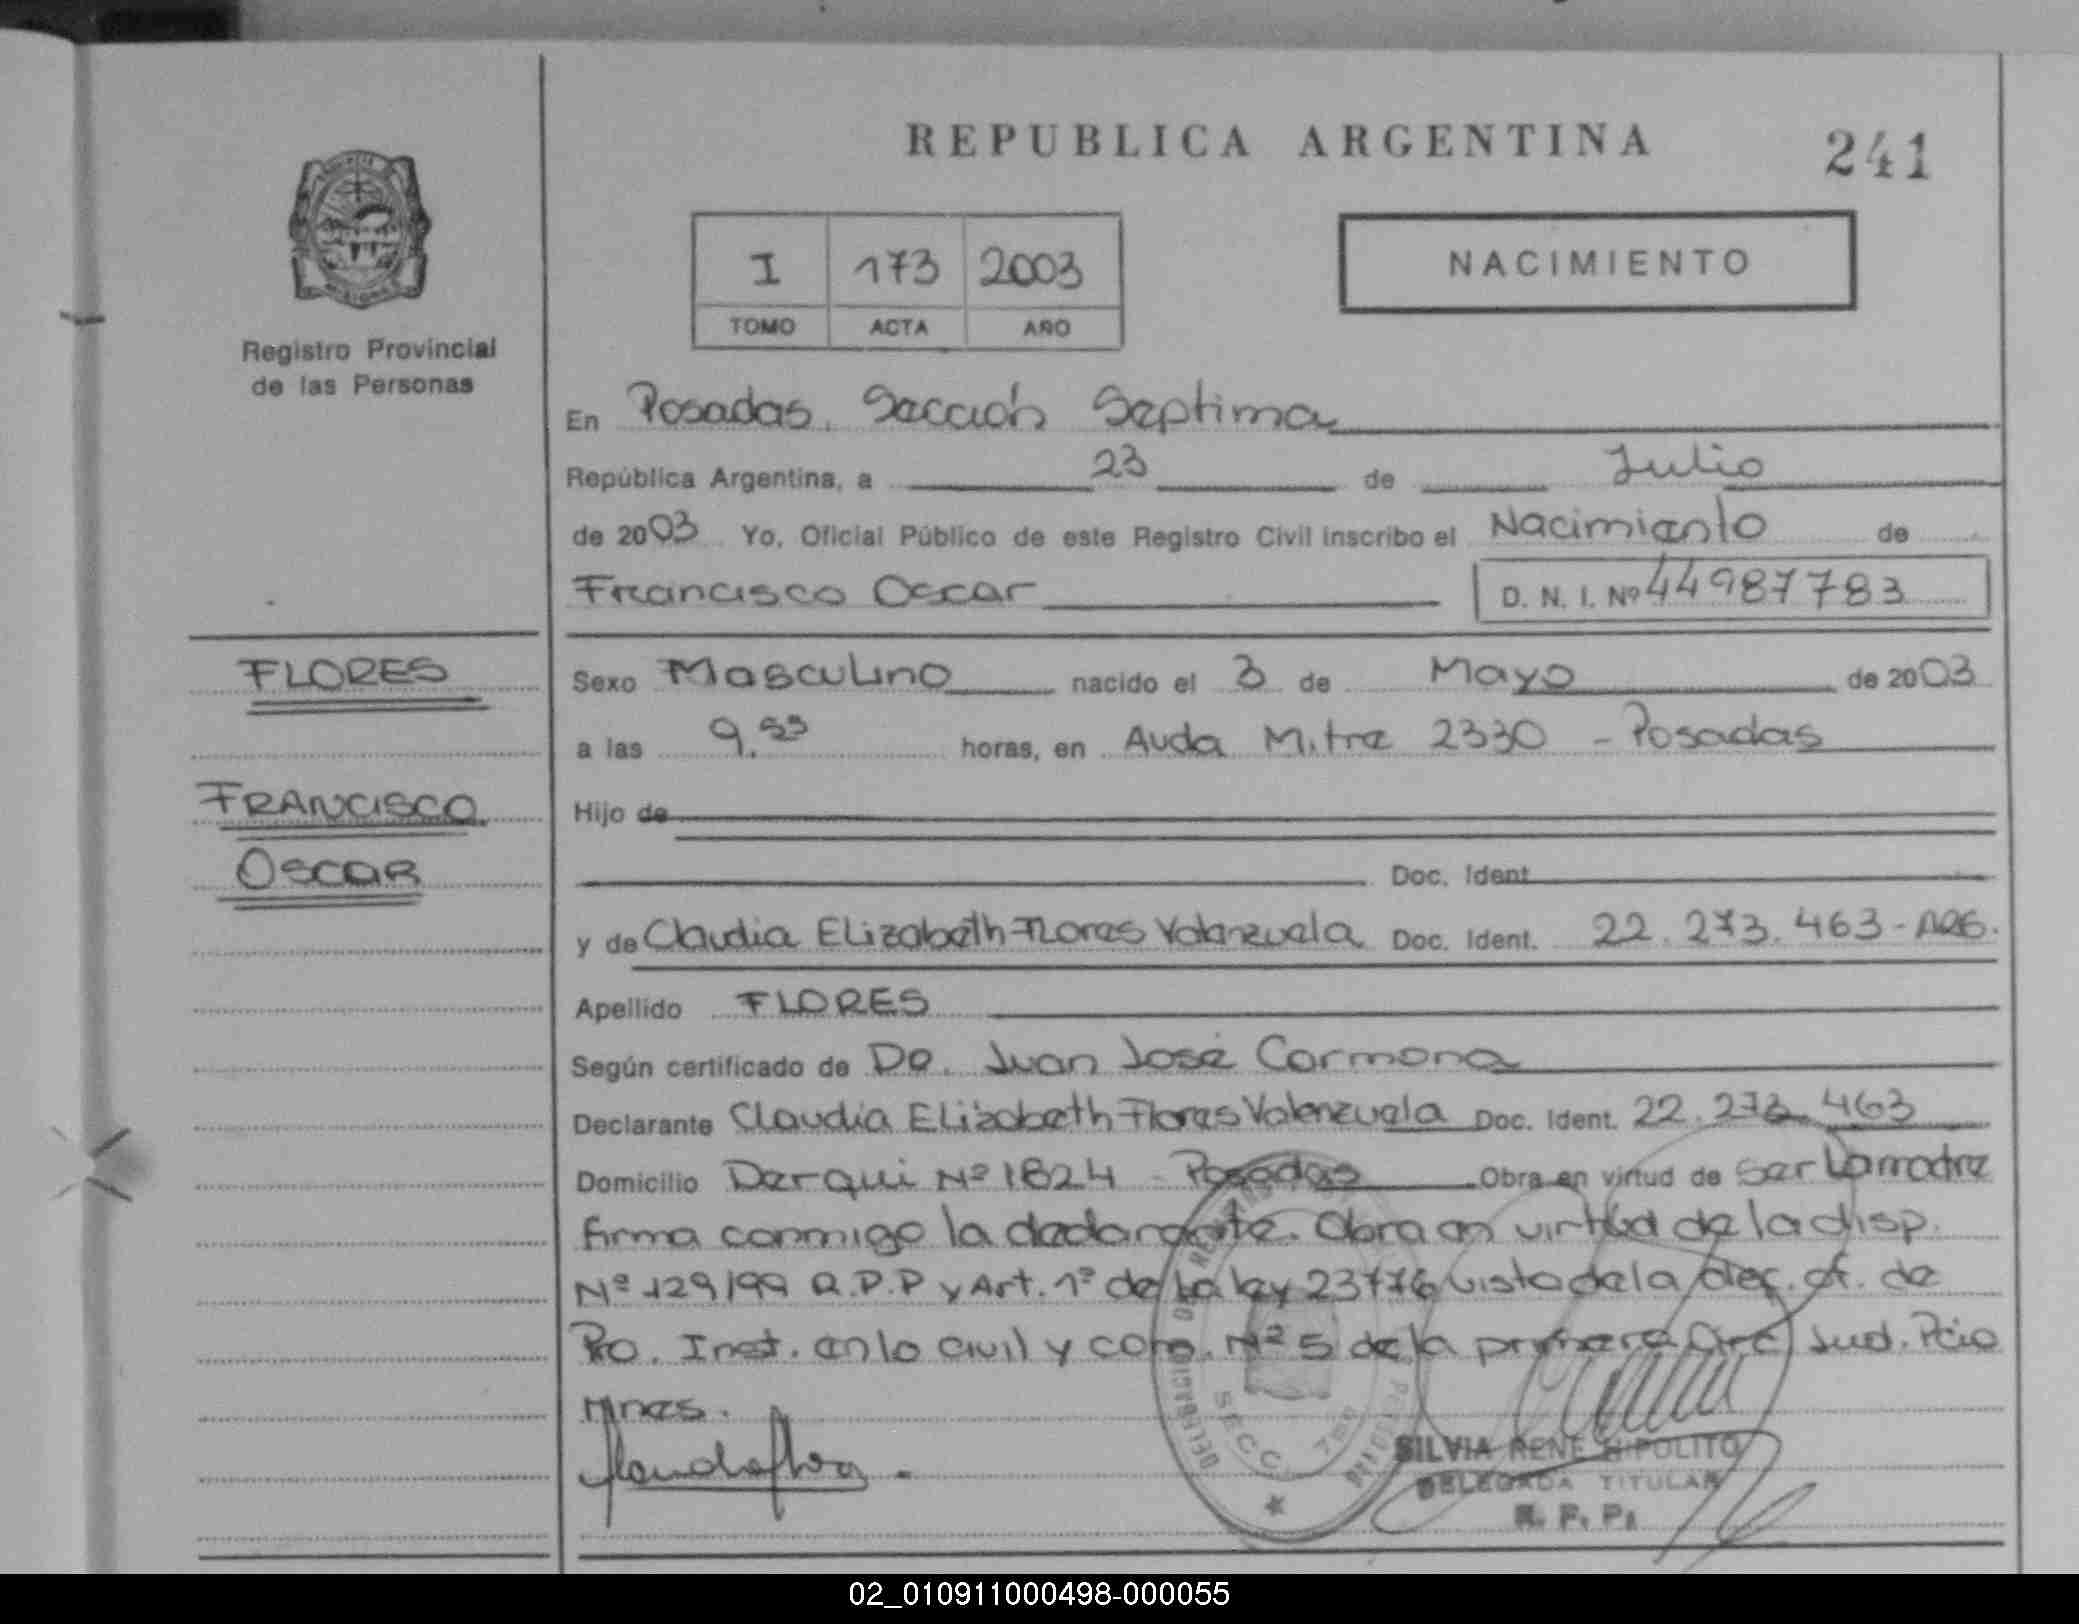 REPUBLICA ARGENTINA
241
I 173 2003
TOMO ACTA AÑO
NACIMIENTO
Registro Provincial
de las Personas
En Posadas, Sección Septima
República Argentina, a 23 de Julio
de 2003 Yo, Oficial Público de este Registro Civil inscribo el Nacimiento de
Francisco Oscar D. N. I. Nº 44987783
FLORES
FRANCISCO
OSCAR
Sexo Masculino nacido el 3 de Mayo de 2003
a las 9.55 horas, en Avda Mitre 2330 - Posadas
Hijo de
Doc. Ident
y de Claudia Elizabeth Flores Valenzuela Doc. Ident. 22.273.463-ARG.
Apellido FLORES
Según certificado de Dr. Juan José Carmona
Declarante Claudia Elizabeth Flores Valenzuela Doc. Ident. 22.273.463
Domicilio Derqui Nº 1824 - Posadas Obra en virtud de ser la madre
firma conmigo la declarante. Obra en virtud de la disp.
Nº 129/99 R.P.P y Art. 1º de la ley 23776 visto de la of. de
Pro. Inst. en lo civil y com. Nº 5 de la primera Circ Jud. Pcia
Mnes.
SECC. 7ma
SILVIA RENE HIPOLITO
DELEGADA TITULAR
R. P. P.
02_010911000498-000055